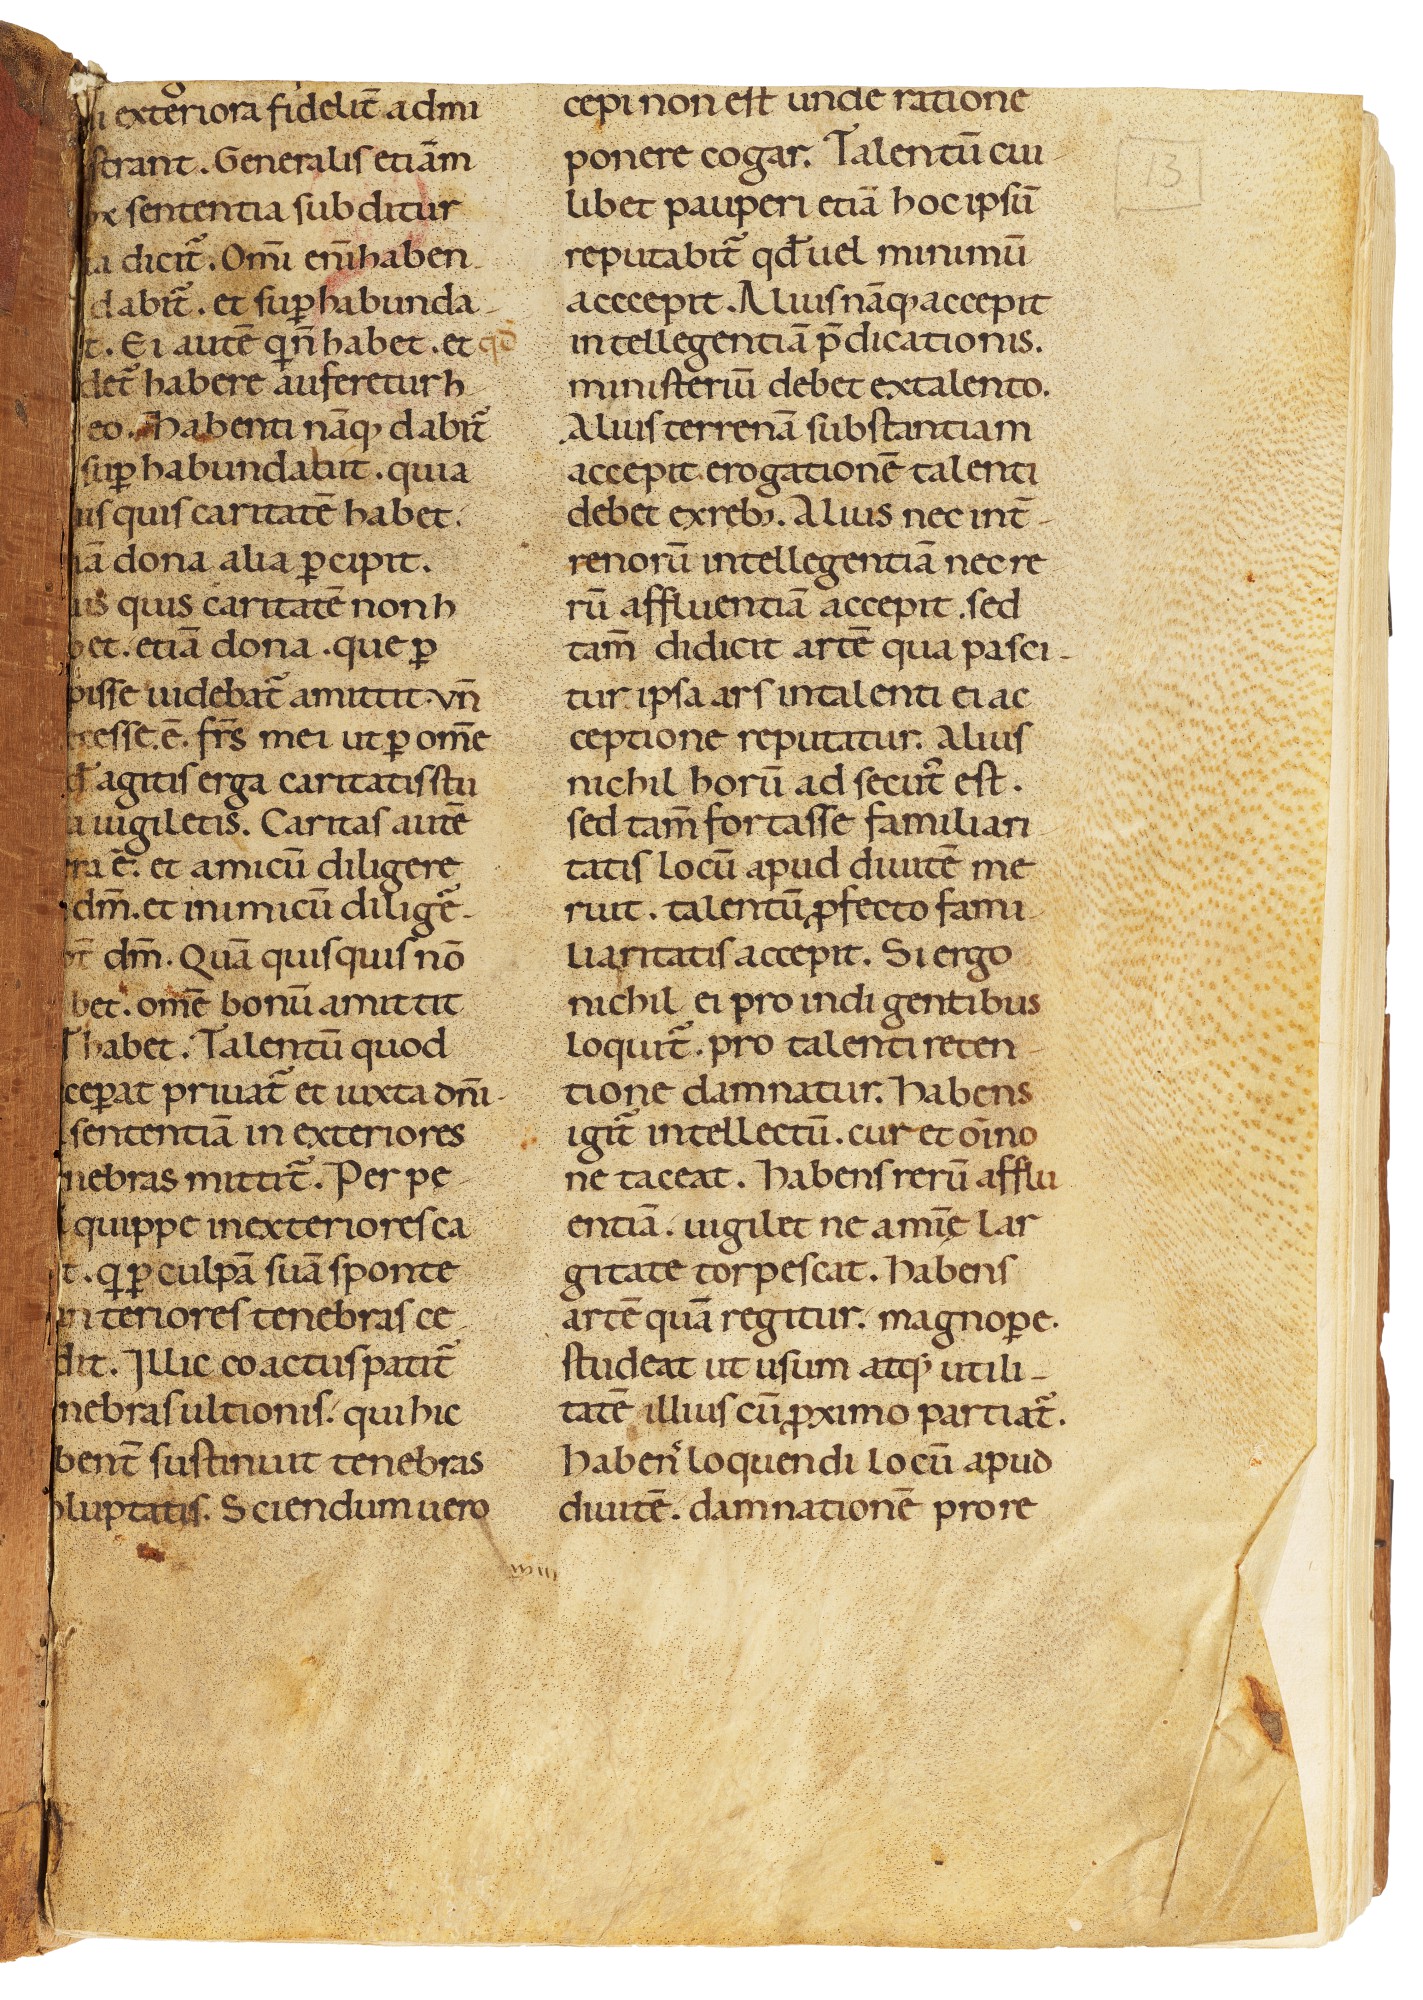 exteriora fidelit̄ admi
strant. Generalis etiā m
sententia subditur
dicit̄. Om̄i en̄i haben
dabit̄. et sup̱ habunda
Ei autē q̇ n̄ habet. et qd̄
det̄ habere aufereturh
eo. habenti nāq; dabit̄
sup̱ habundabit. quia
quis caritatē habet.
dona alia p̱cipit.
quis caritatē non h
et. etiā dona. que p̱
pisse uidebat̄ amittit. Vn̄
ecesse. ē. fr̄s mei ut p̱ om̄e
agitis erga caritatis stu
uigiletis. Caritas autē
ra ē. et amicū diligere
dm̄. et inimicū diligē
dm̄. Quā quisquis nō
bet. om̄e bonū amittit
habet. Talentū quod
cep̱at priuat̄ et iuxta dn̄i
sententiā in exteriores
nebras mittit̄. Per pe
quippe in exteriores ca
t. q; p̱ culpā suā sponte
interiores tenebras ce
dit. Illic coactus patit̄
nebras ultionis. qui hic
bent̄ sustinuit tenebras
oluptatis. Sciendum uero
cepi non est unde ratione
ponere cogar. Talentū cui
libet pauperi etiā hoc ipsū
reputabit̄ qd̄ uel minimū
acccepit. Alius nāq; accepit
intellegentiā p̄dicationis.
ministeriū debet ex talento.
Alius terrenā substantiam
accepit erogationē talenti
debet ex reb;. Alius nec int̄
renorū intellegentiā nec re
rū affluentiā accepit. sed
tam̄ didicit artē qua pasci
tur ipsa ars in talenti ei ac
ceptione reputatur. Alius
nichil horū ad secut̉ est.
sed tam̄ fortasse familiari
tatis locū apud diuitē me
ruit. talentū ꝓfecto fami
liaritatis accepit. Si ergo
nichil ei pro indigentibus
loquit̄. pro talenti reten
tione damnatur. habens
igit̄ intellectū. curet om̄ino
ne taceat. habens rerū afflu
entiā. uigilet ne a mīę lar
gitate torpescat. habens
artē quā regitur. magnop̱e.
studeat ut usum atq; utili
tatē illius cū ꝓximo partiat̄.
habens loquendi locū apud
diuitē. damnationē pro re
13